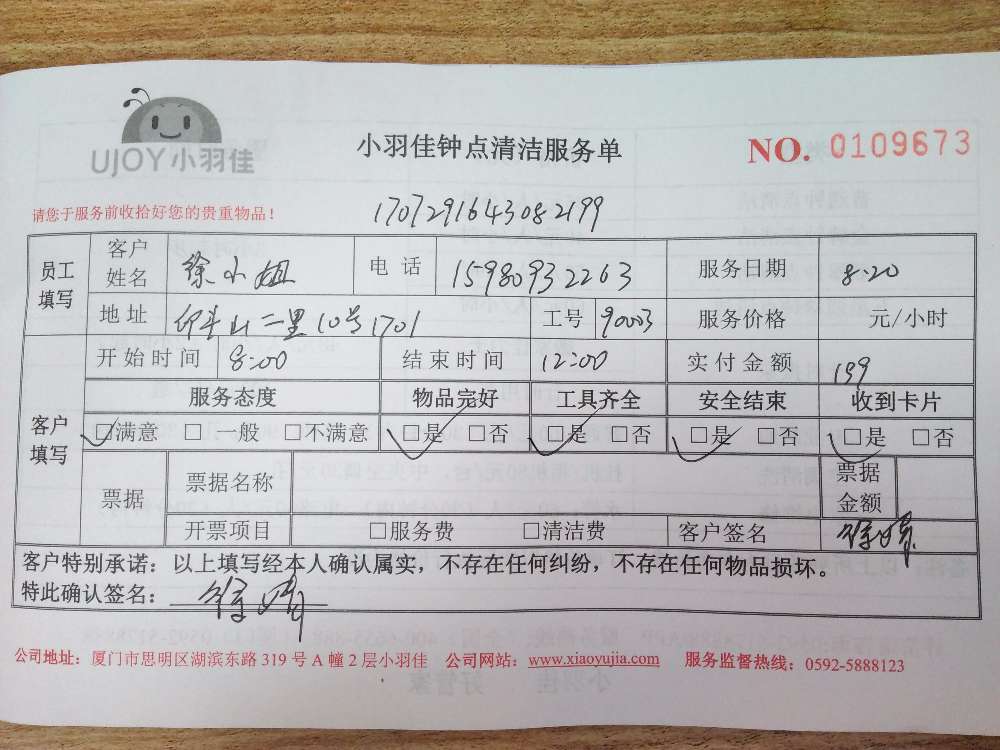 UJOY小羽佳
小羽佳钟点清洁服务单
NO. 0109673
请您于服务前收拾好您的贵重物品！
1707291643082199
员工填写 客户姓名 徐小姐 电话 15980932263 服务日期 8.20
地址 仰半山二里10号1701 工号 90003 服务价格 元/小时
客户填写 开始时间 8:00 结束时间 12:00 实付金额 199
服务态度 物品完好 工具齐全 安全结束 收到卡片
☑满意 □一般 □不满意 ☑是 □否 ☑是 □否 ☑是 □否 ☑是 □否
票据 票据名称 票据金额
开票项目 □服务费 □清洁费 客户签名 徐婧
客户特别承诺：以上填写经本人确认属实，不存在任何纠纷，不存在任何物品损坏。
特此确认签名： 徐婧
公司地址：厦门市思明区湖滨东路319号A幢2层小羽佳 公司网站：www.xiaoyujia.com 服务监督热线：0592-5888123